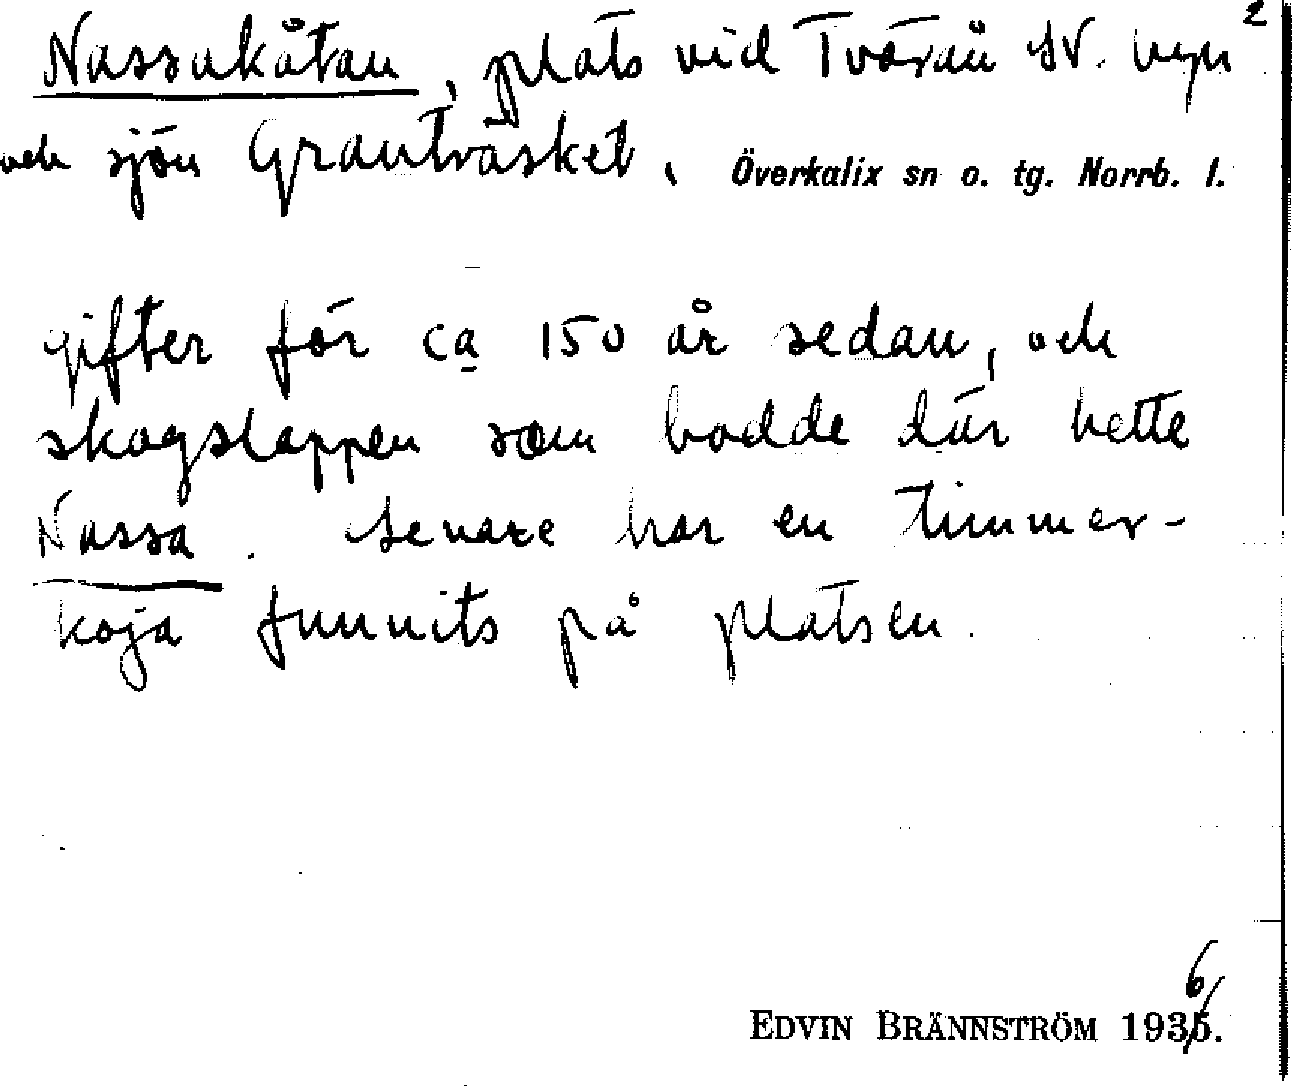 2
Nassakåtan, plats vid Tvärån SV. byn
och sjön Granträsket, Överkalix sn o. tg. Norrb. l.
gifter för ca 150 år sedan, och
skogslappen som bodde där hette
Nassa. Senare har en timmer-
koja funnits på platsen.
6
EDVIN BRÄNNSTRÖM 1935.